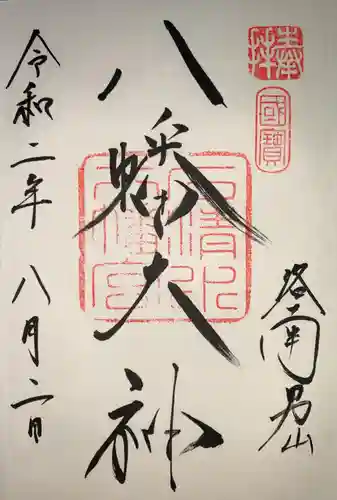 奉拝
國寶
洛南男山
八幡大神
石清水八幡宮
令和二年八月二日